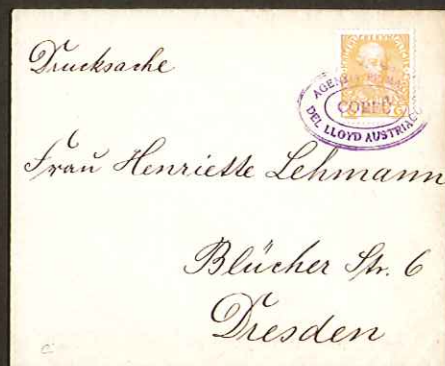 Drucksache
CORFU
DEL LLOYD AUSTRIACO
Frau Henriette Lehmann
Blücher Str. 6
Dresden